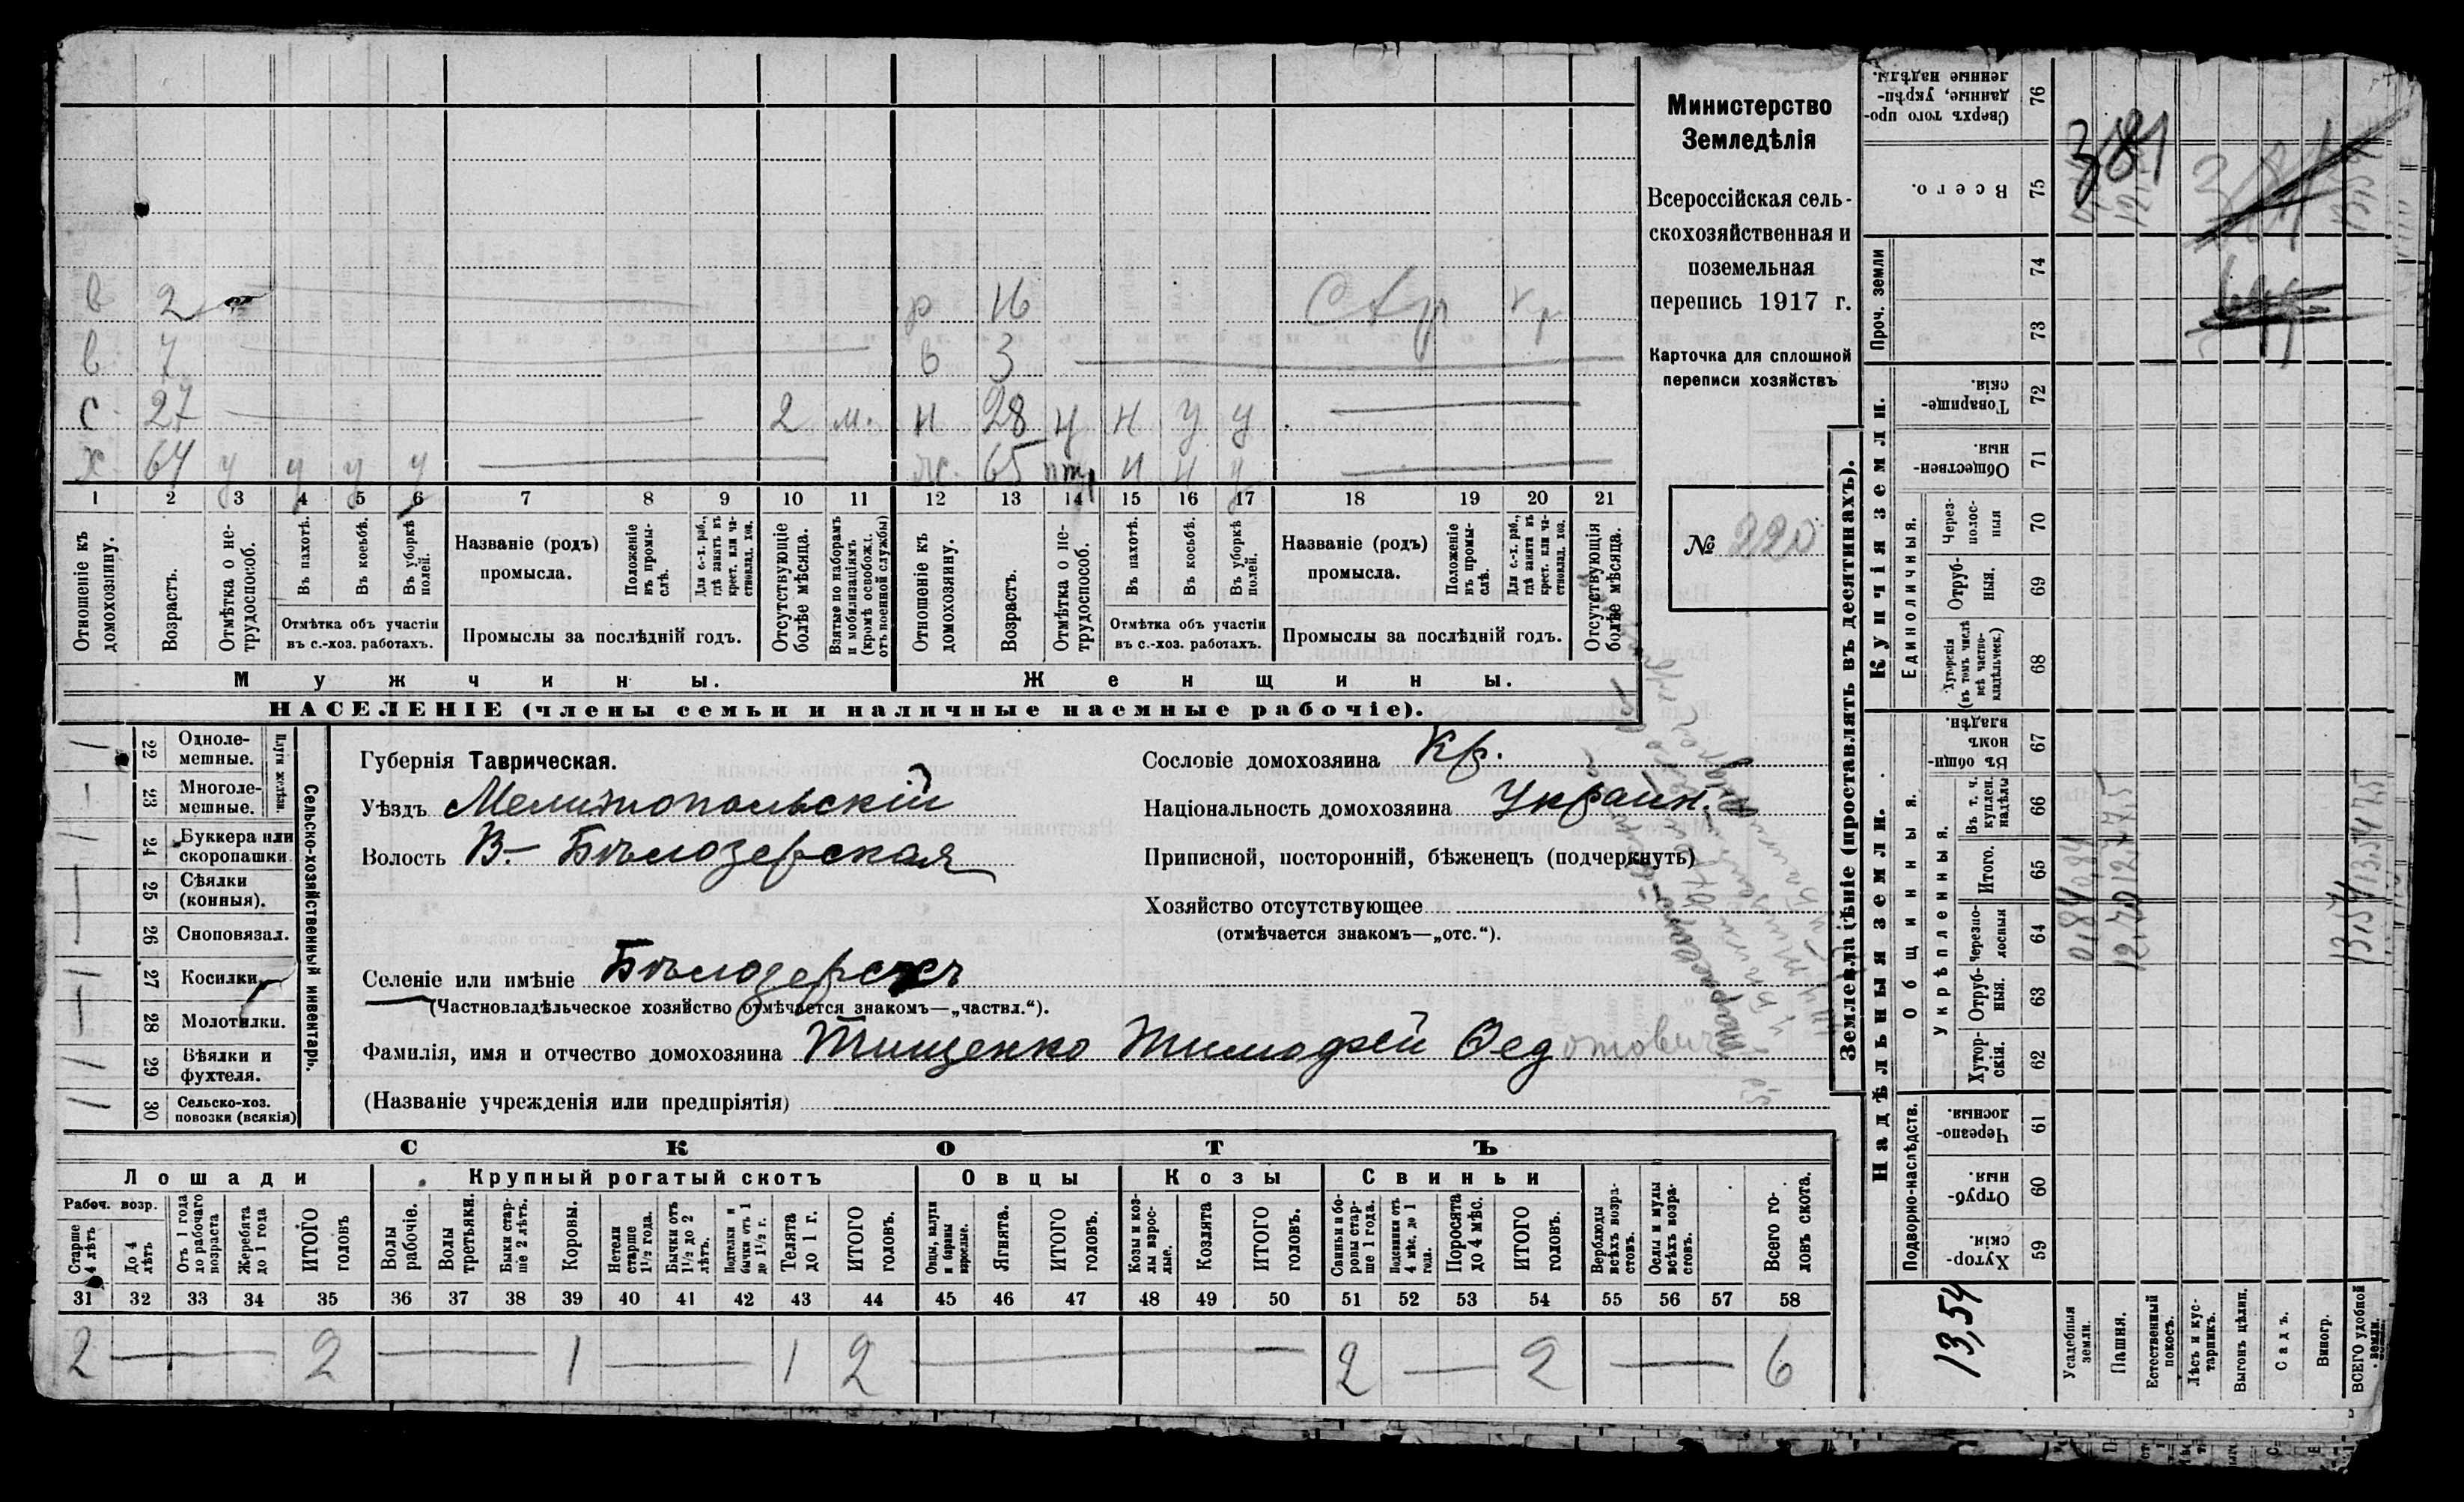 в 2 р 16 Стр
в 7 в 3
с 27 2 м. н 28 н н у у
х 64 у у у у ж. 65 н н у
1 2 3 4 5 6 7 8 9 10 11 12 13 14 15 16 17 18 19 20 21
Отношеніе къ домохозяину.
Возрастъ.
Отмѣтка о нетрудоспособ.
Въ пахотѣ.
Въ косьбѣ.
Въ уборкѣ полей.
Отмѣтка объ участіи въ с.-хоз. работахъ.
Названіе (родъ) промысла.
Положеніе въ промыслѣ.
Для с.-х. раб., гдѣ занятъ въ крест. или частновлад. хоз.
Промыслы за послѣдній годъ.
Отсутствующіе болѣе мѣсяца.
Взятые по наборамъ и мобилизаціямъ (кромѣ освобожд. отъ военной службы)
Отношеніе къ домохозяину.
Возрастъ.
Отмѣтка о нетрудоспособ.
Въ пахотѣ.
Въ косьбѣ.
Въ уборкѣ полей.
Отмѣтка объ участіи въ с.-хоз. работахъ.
Названіе (родъ) промысла.
Положеніе въ промыслѣ.
Для с.-х. раб., гдѣ занята въ крест. или частновлад. хоз.
Промыслы за послѣдній годъ.
Отсутствующія болѣе мѣсяца.
Мужчины.
Женщины.
НАСЕЛЕНІЕ (члены семьи и наличные наемные рабочіе).
Министерство
Земледѣлія
Всероссійская сель-
скохозяйственная и
поземельная
перепись 1917 г.
Карточка для сплошной
переписи хозяйствъ
№ 220
22 Одноле-мешные.
23 Многоле-мешные.
Плуги желѣзн.
24 Буккера или скоропашки
25 Сѣялки (конныя).
26 Сноповязал.
27 Косилки.
28 Молотилки.
29 Вѣялки и фухтеля.
30 Сельско-хоз. повозки (всякія)
Сельско-хозяйственный инвентарь.
Губернія Таврическая.
Уѣздъ Мелитопольскій
Волость В.- Бѣлозерская
Селеніе или имѣніе Бѣлозерскъ
(Частновладѣльческое хозяйство отмѣчается знакомъ—„частвл.“).
Фамилія, имя и отчество домохозяина Тищенко Тимофей Федотович
(Названіе учрежденія или предпріятія)
Сословіе домохозяина Кр.
Національность домохозяина Украин.
Приписной, посторонній, бѣженецъ (подчеркнуть)
Хозяйство отсутствующее
(отмѣчается знакомъ—„отс.“).
СКОТЪ
Лошади
Крупный рогатый скотъ
Овцы
Козы
Свиньи
Рабоч. возр.
Старше 4 лѣтъ
До 4 лѣтъ
Отъ 1 года до рабочаго возраста
Жеребята до 1 года
ИТОГО головъ
Волы рабочіе.
Волы третьяки.
Быки старше 2 лѣтъ.
Коровы.
Нетели старше 1½ года.
Бычки отъ 1½ до 2 лѣтъ.
Подтелки и бычки отъ 1 до 1½ г.
Телята до 1 г.
ИТОГО головъ.
Овцы, валухи и бараны взрослые.
Ягнята.
ИТОГО головъ.
Козы и козлы взрослые.
Козлята
ИТОГО головъ.
Свиньи и боровы старше 1 года.
Подсвинки отъ 4 мѣс. до 1 года.
Поросята до 4 мѣс.
ИТОГО головъ.
Верблюды всѣхъ возрастовъ.
Ослы и мулы всѣхъ возрастовъ.
Всего головъ скота.
31 32 33 34 35 36 37 38 39 40 41 42 43 44 45 46 47 48 49 50 51 52 53 54 55 56 57 58
2 — 2 — 1 — 1 2 — 2 — 2 — 6
Землевладѣніе (проставлять въ десятинахъ).
Купчія земли.
Надѣльныя земли.
Сверхъ того проданные, укрѣпленные надѣлы. 76
Всего. 75
Проч. земли
74
73
Товарищескія. 72
Общественныя 71
Единоличныя.
Черезполосныя 70
Отрубныя. 69
Хуторскія (въ томъ числѣ всѣ частновладѣльческ.) 68
Общинныя.
Въ общинномъ владѣн. 67
Укрѣпленныя.
Въ т. ч. куплен. надѣлы 66
Итого. 65
Черезполосныя 64
Отрубныя. 63
Хуторскія. 62
Подворно-наслѣдств.
Черезполосныя. 61
Отрубныя 60
Хуторскія. 59
381
0,84 0,84
12,70 12,7 7,5
13,54 13,54 7,5
13,54
Усадебныя земли.
Пашня.
Естественный покосъ.
Лѣсъ и кустарникъ.
Выгонъ цѣлин.
Садъ.
Виногр.
ВСЕГО удобной земли.